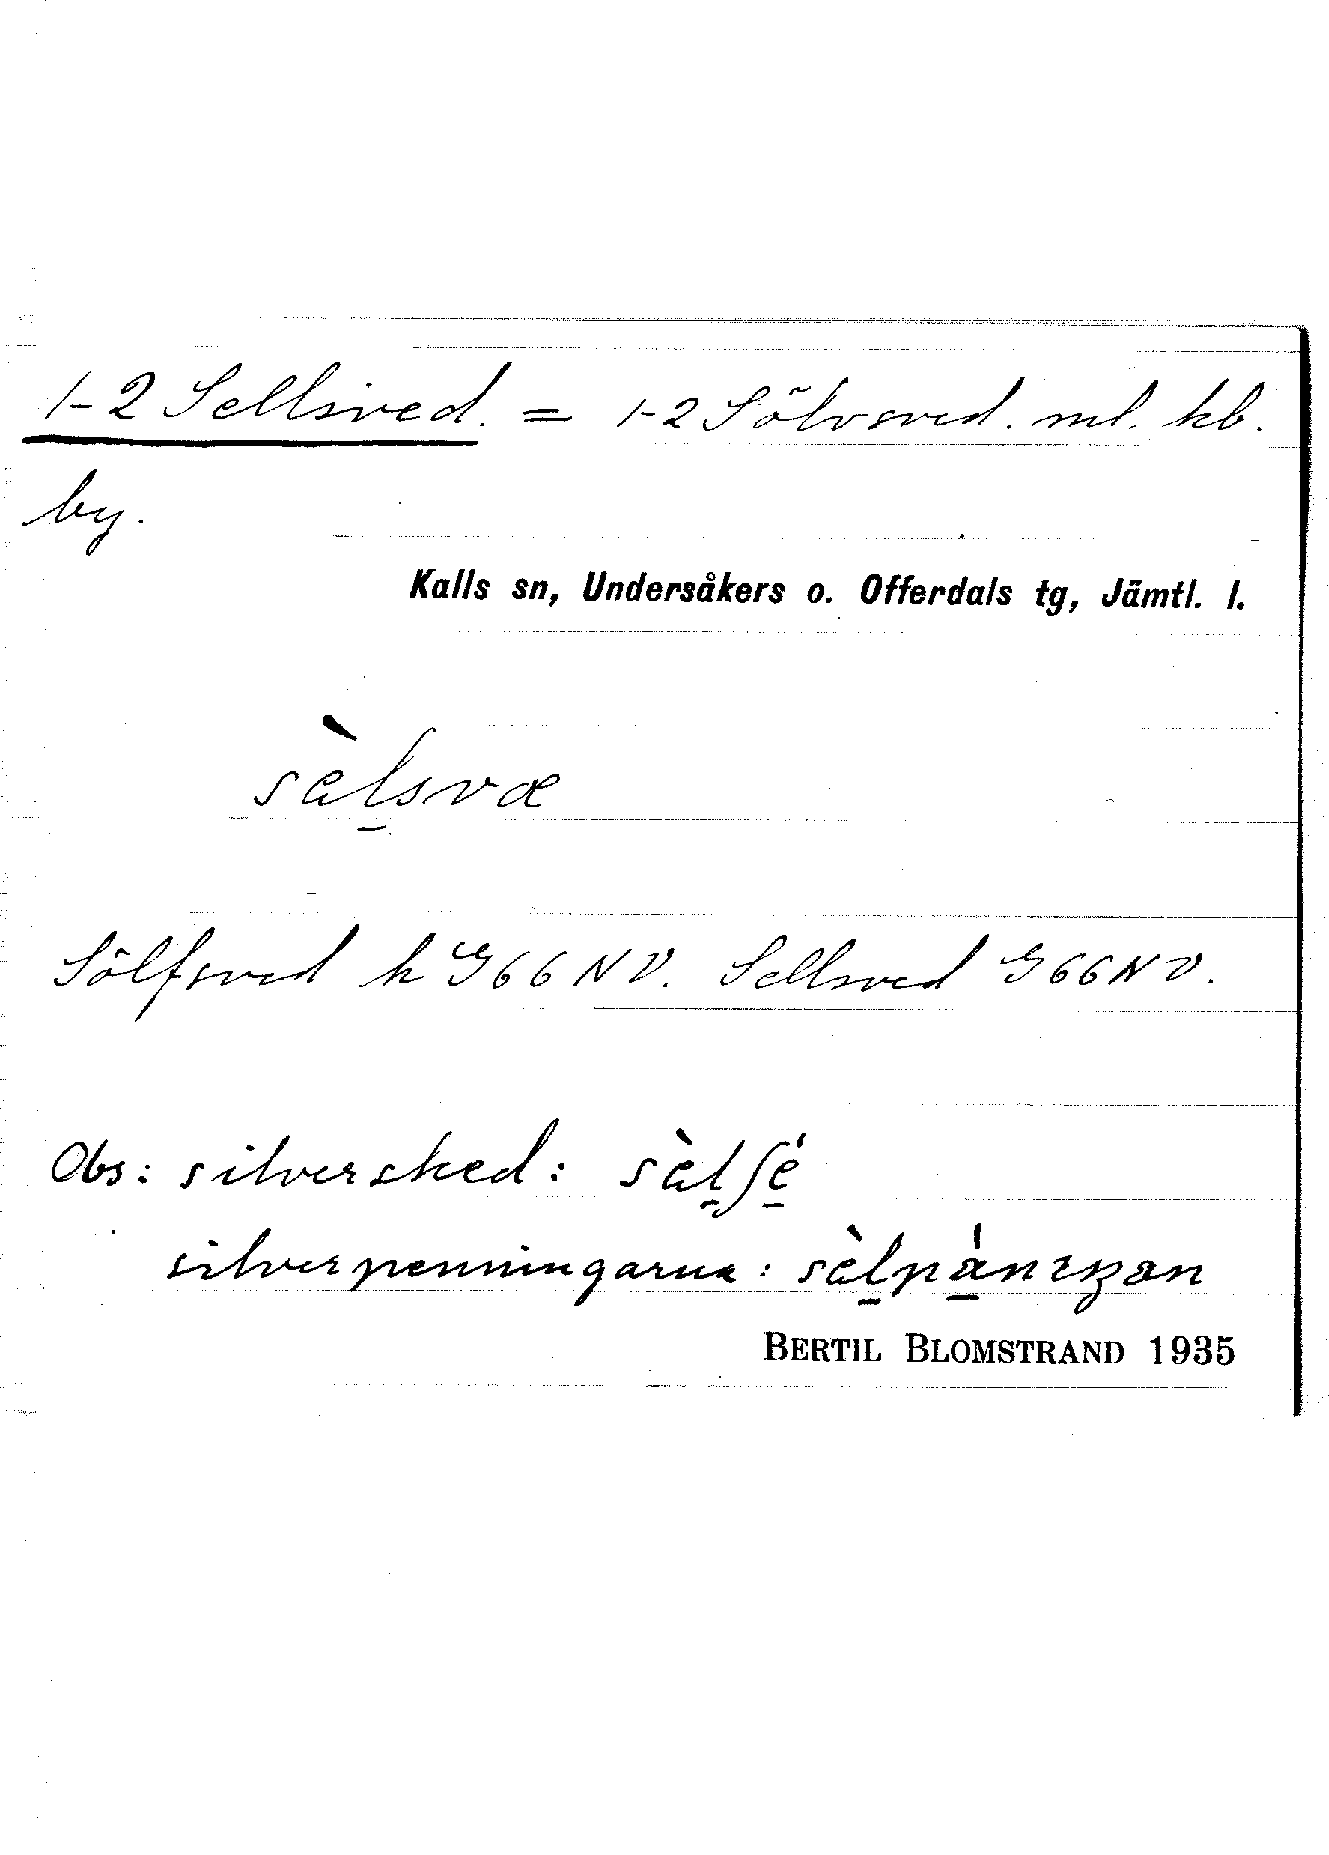 1-2 Sellsved. = 1-2 Sölvsved. ml. kb.
by.
Kalls sn, Undersåkers o. Offerdals tg, Jämtl. l.
sèl̠svæ
Sölfsved k G66NV. Sellsved G66NV.
Obs: silversked: sèl̠ʃé̠
silverpenningarna: sèl̠pá̠nıŋan
BERTIL BLOMSTRAND 1935